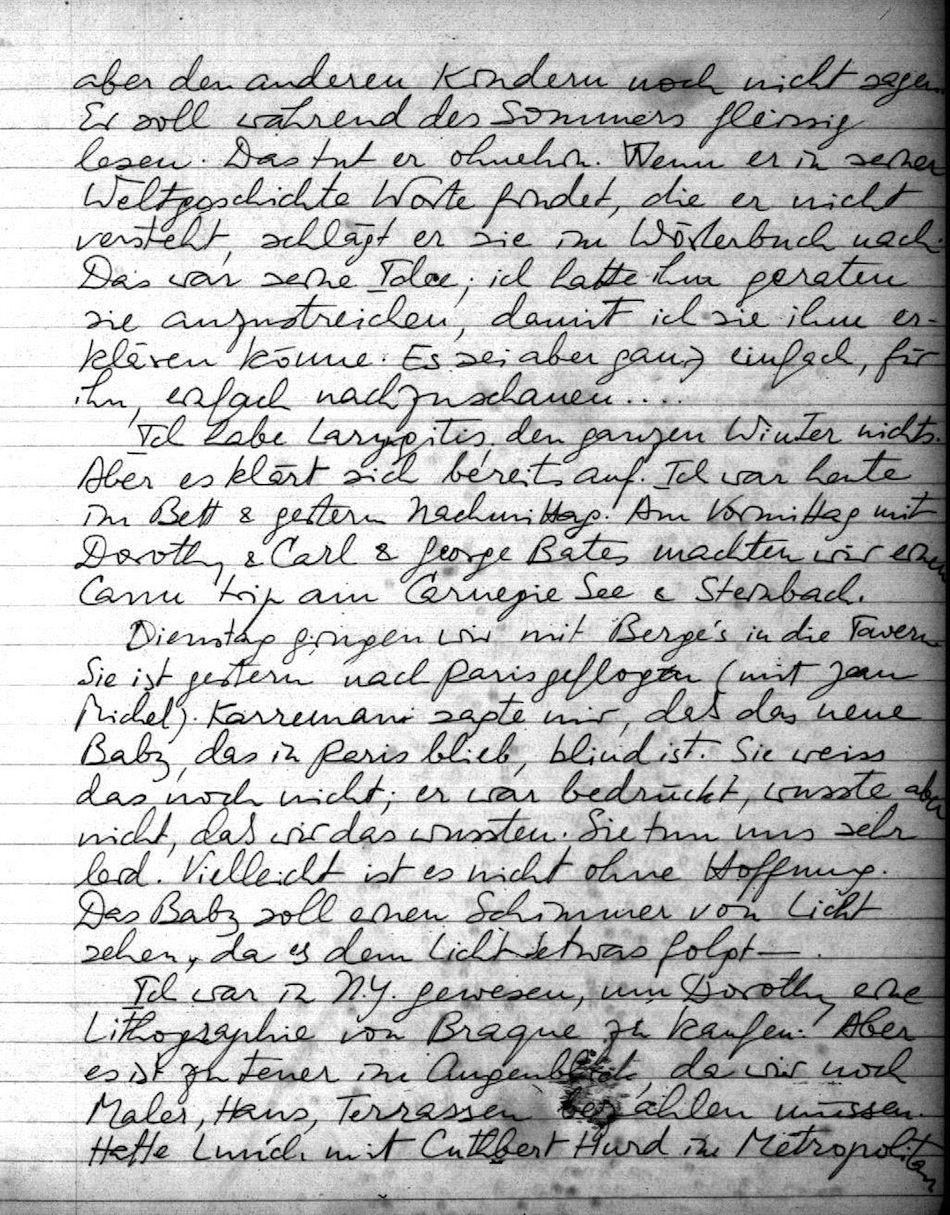 aber den anderen Kindern noch nicht sagen.
Er soll während des Sommers fleissig
lesen. Das tut er ohnehin. Wenn er in seiner
Weltgeschichte Worte findet, die er nicht
versteht, schlägt er sie im Wörterbuch nach.
Das war seine Idee; ich hatte ihm geraten
sie anzustreichen, damit ich sie ihm er-
klären könne. Es sei aber ganz einfach, für
ihn, einfach nachzuschauen....
Ich habe Laryngitis, den ganzen Winter nichts.
Aber es klärt sich bereits auf. Ich war heute
im Bett & gestern Nachmittag. Am Vormittag mit
Dorothy & Carl & George Bates machten wir einen
Canu trip am Carnegie See & Steinbach.
Dienstag gingen wir mit Berge's in die Tavern.
Sie ist gestern nach Paris geflogen (mit Jean
Michel). Karreman sagte mir, daß das neue
Baby, das in Paris blieb, blind ist. Sie weiss
das noch nicht; er war bedrückt, wusste aber
nicht, daß wir das wussten. Sie tun uns sehr
leid. Vielleicht ist es nicht ohne Hoffnung.
Das Baby soll einen Schimmer von Licht
sehen, da es dem Licht etwas folgt—.
Ich war in N.Y. gewesen, um Dorothy eine
Lithographie von Braque zu kaufen. Aber
es ist zu teuer im Augenblick, da wir noch
Maler, Haus, Terrassen bezahlen müssen.
Hatte Lunch mit Cuthbert Hurd im Metropolitan